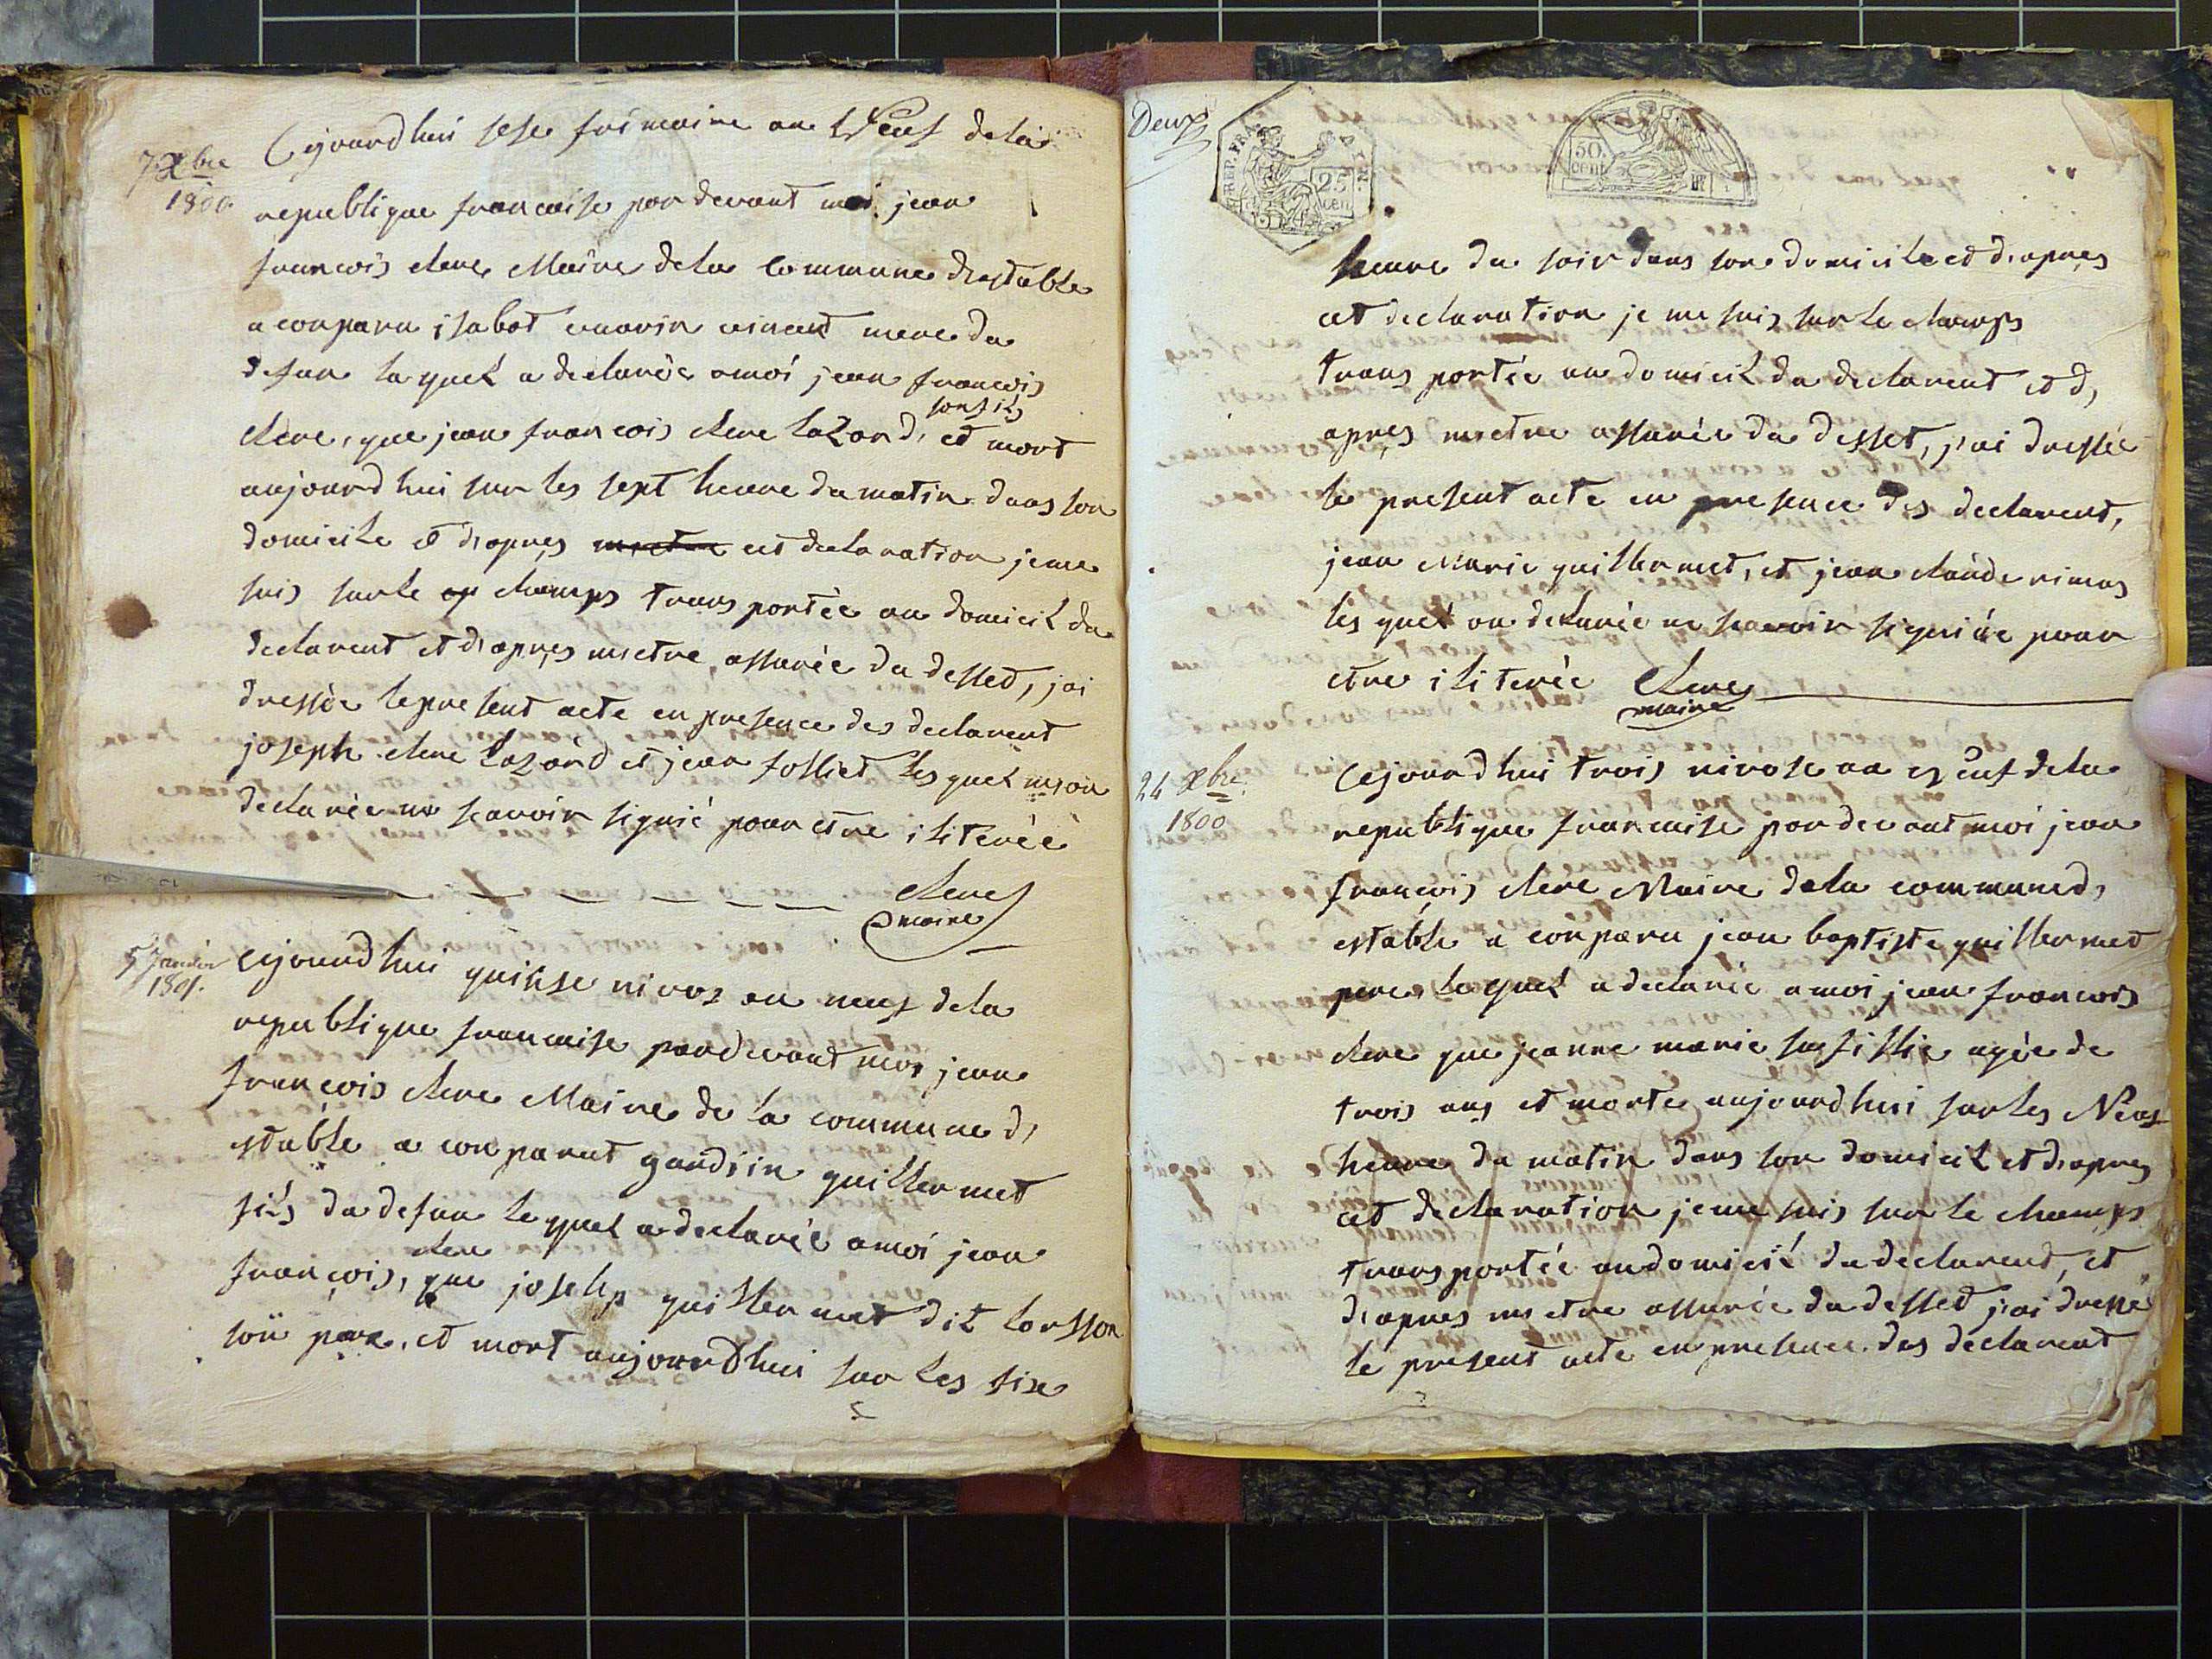 7 Xbre
1800
Cejourdhui sese frimaire an Neuf dela
republique francaise pardevant moi jean
francois clere Maire dela Commune destable
a conparu isabot vincent mere du
defun laquel a declarée amoi jean francois
clere, que jean francois clere lazard, son fils et mort
aujourdhui sur les sept heure du matin dans son
domicile et d'apres cet declaration jeme
suis surle champs transportée au domicil du
declarent et d'apres mêtre assurée du desset, jai
dressée lepresent acte enpresence des declarent
joseph clere lazard et jean folliet lesquel mon
declarée ne scavoir signié pour etre iliterée
Clere
maire
5 Janvier
1801.
Cejourdhui quinse nivos an neuf dela
republique francaise pardevant moi jean
françois clere Maire de la commune d,
estable a conparut gandiin quillermet
fils du defun lequel adeclarée amoi jean
françois, clere que joselp quillermet dit lorsson
son pere, et mort aujourdhui sur les six
Deux
REP. FRA.
25
cen
50.
cent
heure du soir dans son domicile et d'apres
cet declaration je me suis sur le champs
transportée au domicil du declarent et d,
apres mêtre assurée du desset, j'ai dressée
le present acte en presence des declarent,
jean Marie quillermet, et jean claude rimas
lesquel on déclarée ne scavoir signiée pour
etre iliterée Clere
maire
24 Xbre
1800
Cejourdhui trois nivose an neuf dela
republique francaise pardevant moi jean
françois clere Maire dela commune d,
estable a conparu jean baptiste quillermet
pere, lequel a declarée amoi jean francois
clere que jeanne marie sa fillie agée de
trois ans et morte aujourdhui sur les Neuf
heure du matin dans son domicil et d'apres
cet declaration jeme suis sur le champs
transportée audomicil du declarent, et
d'apres mêtre assurée du desset j'ai dressé
le present acte en presence des declarent